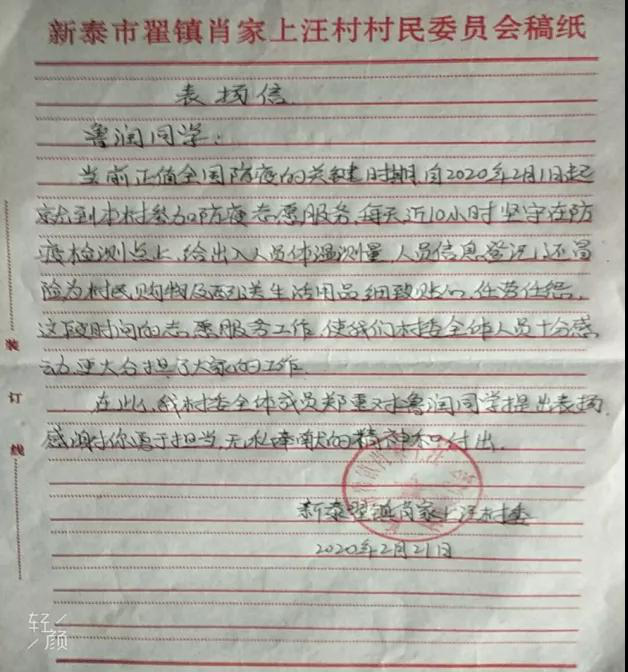 新泰市翟镇肖家上汪村村民委员会稿纸
表扬信
鲁润同学：
当前正值全国防疫的关键时期自2020年2月1日起
就到本村参加防疫志愿服务,每天近10小时坚守在防
疫检测点上,给出入人员体温测量,人员信息登记,还冒
险为村民购物及配送生活用品,细致贴心,任劳任怨,
这段时间的志愿服务工作,使我们村委全体人员十分感
动,更大分担了大家的工作.
在此,我村委全体成员郑重对鲁润同学提出表扬,
感谢你勇于担当,无私奉献的精神和付出.
新泰翟镇肖家上汪村委
2020年2月21日
装
订
线
轻颜